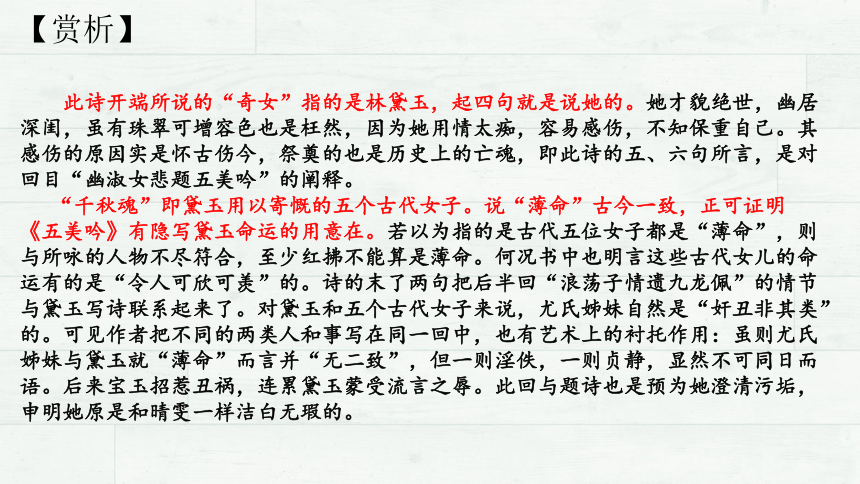 【赏析】
此诗开端所说的“奇女”指的是林黛玉，起四句就是说她的。她才貌绝世，幽居
深闺，虽有珠翠可增容色也是枉然，因为她用情太痴，容易感伤，不知保重自己。其
感伤的原因实是怀古伤今，祭奠的也是历史上的亡魂，即此诗的五、六句所言，是对
回目“幽淑女悲题五美吟”的阐释。
“千秋魂”即黛玉用以寄慨的五个古代女子。说“薄命”古今一致，正可证明
《五美吟》有隐写黛玉命运的用意在。若以为指的是古代五位女子都是“薄命”，则
与所咏的人物不尽符合，至少红拂不能算是薄命。何况书中也明言这些古代女儿的命
运有的是“令人可欣可羡”的。诗的末了两句把后半回“浪荡子情遗九龙佩”的情节
与黛玉写诗联系起来了。对黛玉和五个古代女子来说，尤氏姊妹自然是“奸丑非其类”
的。可见作者把不同的两类人和事写在同一回中，也有艺术上的衬托作用：虽则尤氏
姊妹与黛玉就“薄命”而言并“无二致”，但一则淫佚，一则贞静，显然不可同日而
语。后来宝玉招惹丑祸，连累黛玉蒙受流言之辱。此回与题诗也是预为她澄清污垢，
申明她原是和晴雯一样洁白无瑕的。